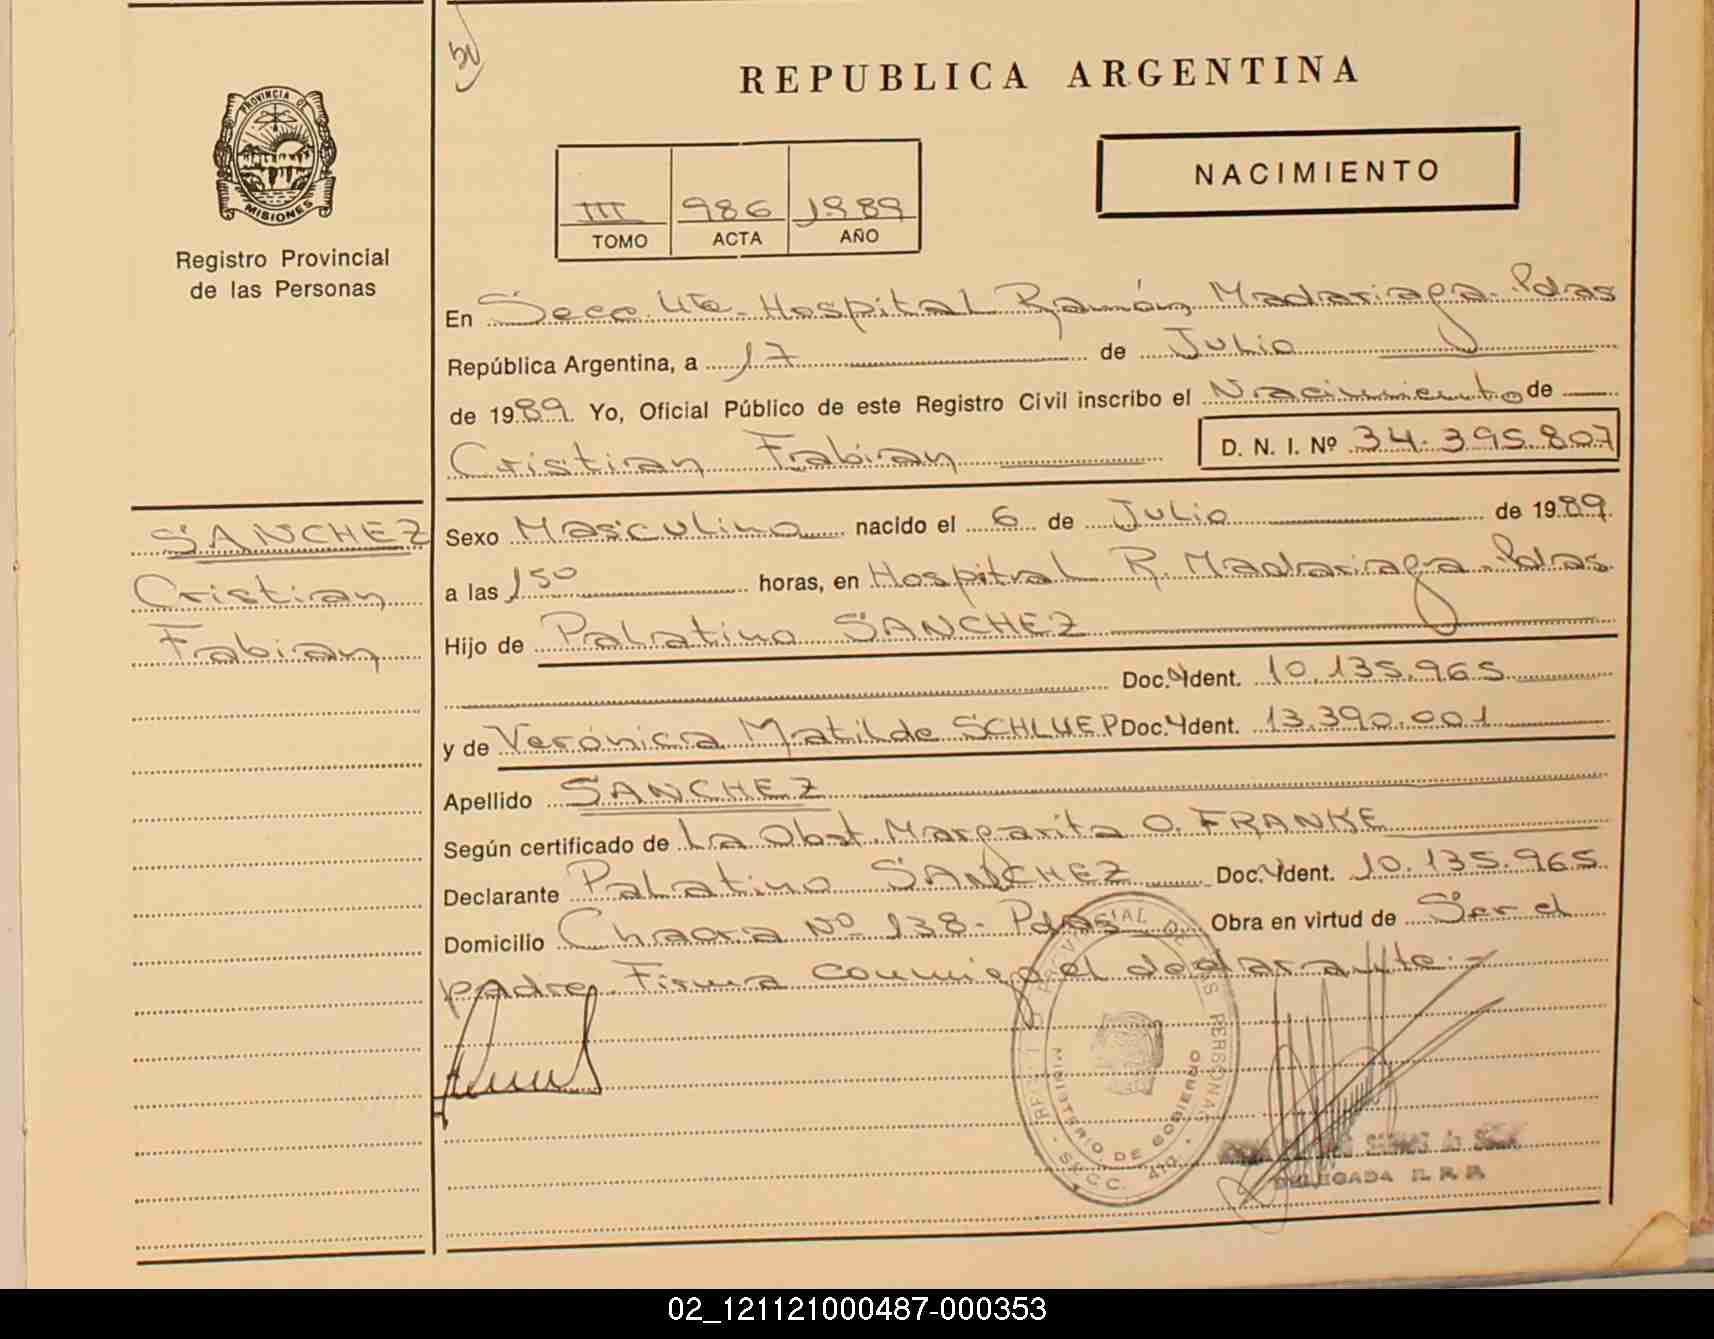 REPUBLICA ARGENTINA
PROVINCIA DE
MISIONES
Registro Provincial
de las Personas
III 986 1989
TOMO ACTA AÑO
NACIMIENTO
En Secc. 4ta. Hospital Ramón Madariaga. Pdas
República Argentina, a 17 de Julio
de 1989. Yo, Oficial Público de este Registro Civil inscribo el Nacimiento de
Cristian Fabian D. N. I. Nº 34.395.807
SANCHEZ
Cristian
Fabian
Sexo Masculino nacido el 6 de Julio de 1989.
a las 150 horas, en Hospital R. Madariaga. Pdas.
Hijo de Palatino SANCHEZ
Doc. Ident. 10.135.965
y de Verónica Matilde SCHLUEP Doc. Ident. 13.390.001
Apellido SANCHEZ
Según certificado de La Obst. Margarita O. FRANKE
Declarante Palatino SANCHEZ Doc. Ident. 10.135.965
Domicilio Chacra Nº 138- Pdas. Obra en virtud de Ser el
padre. Firma conmigo el declarante.-
PROVINCIAL DE LAS PERSONAS
MINISTERIO DE GOBIERNO
SECC. 4ta.
DELEGADA R. P. P.
02_121121000487-000353